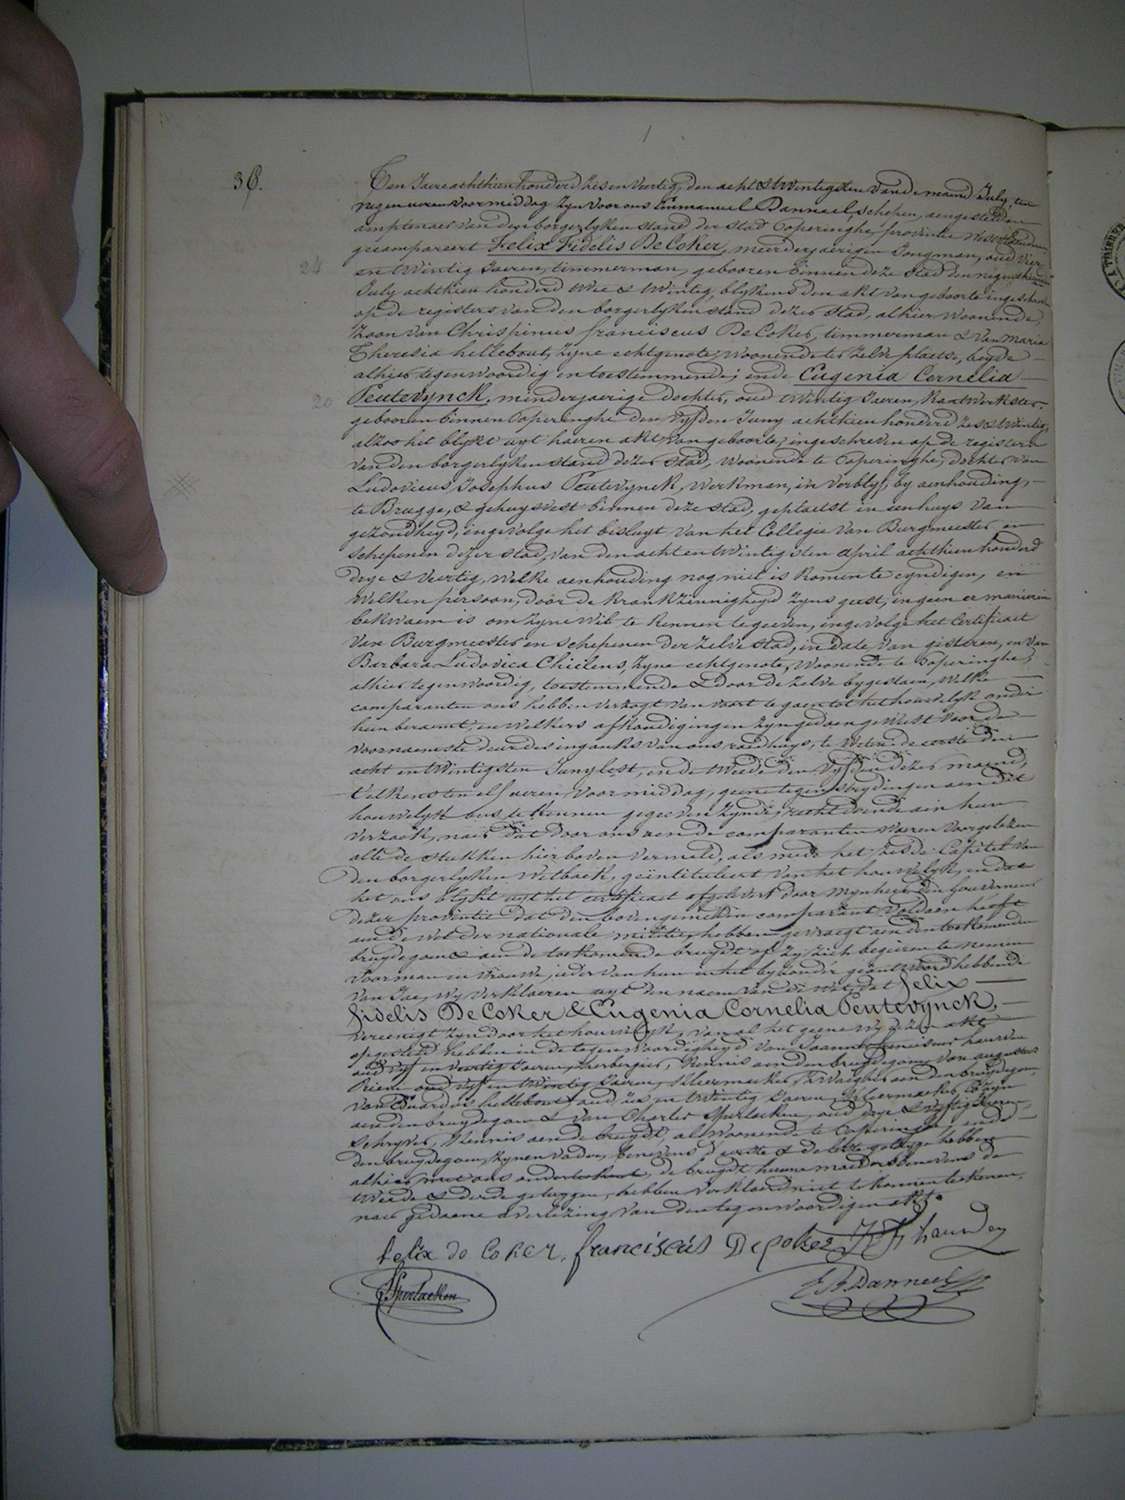 36.
Ten Jaere achthien honderd zes en veertig, den acht & twintigsten van de maend July, ten
negen uren voormiddag zyn voor ons Emmanuel Danneel, schepen, aengestelden
amptenaer van den borgerlyken stand der stad Poperinghe, provintie Westvlaenderen
gecompareert Felix Fidelis De Coker, meerderjaerigen Jongman, oud vier
24
en twintig Jaeren, timmerman, gebooren binnen deze Stad den negenthienden
July achthien honderd twee & twintig, blykens den akt van geboorte ingeschreven
op de registers van den borgerlyken stand dezer Stad, alhier woonende,
Zoon van Chrispinus franciscus De Coker, timmerman & van Maria
Theresia hellebout, zyne echtgenote, woonende ter zelve plaetse, beyde
alhier tegenwoordig en toestemmende; ende Eugenia Cornelia
20
Peutevynck, minderjaerige dochter, oud twintig Jaeren, Kantwerkster,
gebooren binnen Poperinghe den vyfden Juny achthien honderd zes & twintig,
alzoo het blykt uyt haeren akt van geboorte, ingeschreven op de registers
van den borgerlyken stand dezer Stad, woonende te Poperinghe, dochter van
Ludovicus Josephus Peutevynck, werkman, in verblyf, by aenhouding,
te Brugge, & gehuysvest binnen deze stad, geplaetst in een huys van
gezondheyd, ingevolge het besluyt van het Collegie van Burgmeester en
schepenen dezer stad, van den acht en twintigsten april achthien honderd
drye & veertig, welke aenhouding nog niet is komen te eyndigen, en
welken persoon, door de krankzinnigheyd zyns geest, in geene manieren
bekwaem is om zyne wil te kennen te geeven, ingevolge het Certificaet
van Burgmeester en schepenen der zelve stad, in date van gisteren, en van
Barbara Ludovica Chielens, zyne echtgenote, woonende te Poperinghe,
alhier tegenwoordig, toestemmende & door de zelve bygestaen, welke
comparanten ons hebben verzogt van voort te gaen tot het houwelyk onder
hun beraemt, en welkers afkondigingen zyn gedaen geweest voor de
voornaemste deur des ingancks van ons raedhuys, te weten: de eerste den
acht en twintigsten Juny lest, en de tweede den vyfden dezer maend,
telkens ten elf uren voormiddag, geene tegenstrydingen aen dit
houwelyk ons te kennen gegeeven zynde, recht doende aen hun
verzoek, naer dat door ons aen de comparanten waeren voorgelezen
alle de stukken hier boven vermeld, als mede het zesde Capitel van
den borgerlyken Wetboek, geintituleert van het houwelyk, en dat
het ons blykt uyt het certificaet afgelevert door Mynheer den Gouverneur
dezer provintie dat den bovengemelden comparant voldaen heeft
aen de wet der nationale militie, hebben gevraegt aen den toekomenden
bruydegom & aen de toekomende bruydt of zy zich begeeren te nemen
voor man en vrouwe, ieder van hun in het byzonder geantwoord hebbende
van Jae, wy verklaeren uyt den naem van de wet, dat felix
fidelis De Coker & Eugenia Cornelia Peutevynck,
vereenigt zyn door het houwelyk, van al het geene wy dezen akt
opgesteld hebben in de tegenwoordigheyd van Joannes
oud vyf en veertig Jaeren, herbergier, Kennis aen den bruydegom, van augustus
Riem oud vyf en twintig Jaeren, kleermaeker, aen den bruydegom,
van Eduardus hellebout oud zes en twintig Jaeren, kleermaeker, Cozyn
aen den bruydegom & van Charles Sporlacken, oud drye & vyftig Jaeren,
schryver, Kennis aen de bruydt, al woonende te Poperinghe, ende
den bruydegom, zynen vader, benevens d'eerste & de letste getuyge hebben
alhier met ons onderteekent, de bruydt hunne moeders benevens de
tweede & derde getuygen, hebben verklaerd niet te konnen teekenen,
naer gedaene overlezing van den tegenwoordigen akt.
felix de Coker, franciscus De Coker
Sporlacken
E. Danneel